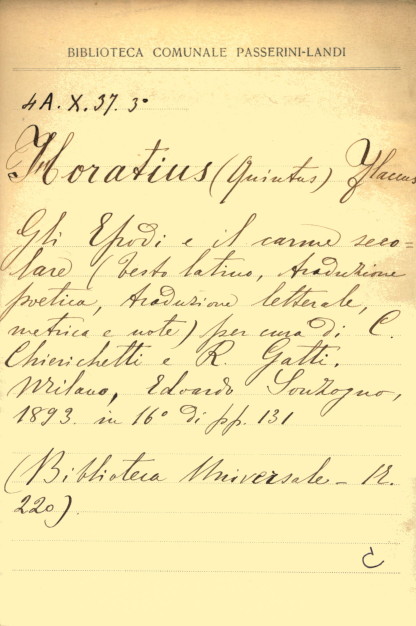 BIBLIOTECA COMUNALE PASSERINI-LANDI
4A.X.37.3°
Horatius (Quintus) Flaccus
Gli Epodi e il carme seco=
lare (testo latino, traduzione
poetica, traduzione letterale,
metrica e note) per cura di C.
Chierichetti e R. Gatti.
Milano, Edoardo Sonzogno,
1893 in 16° di pp. 131
(Biblioteca Universale - N.
220).